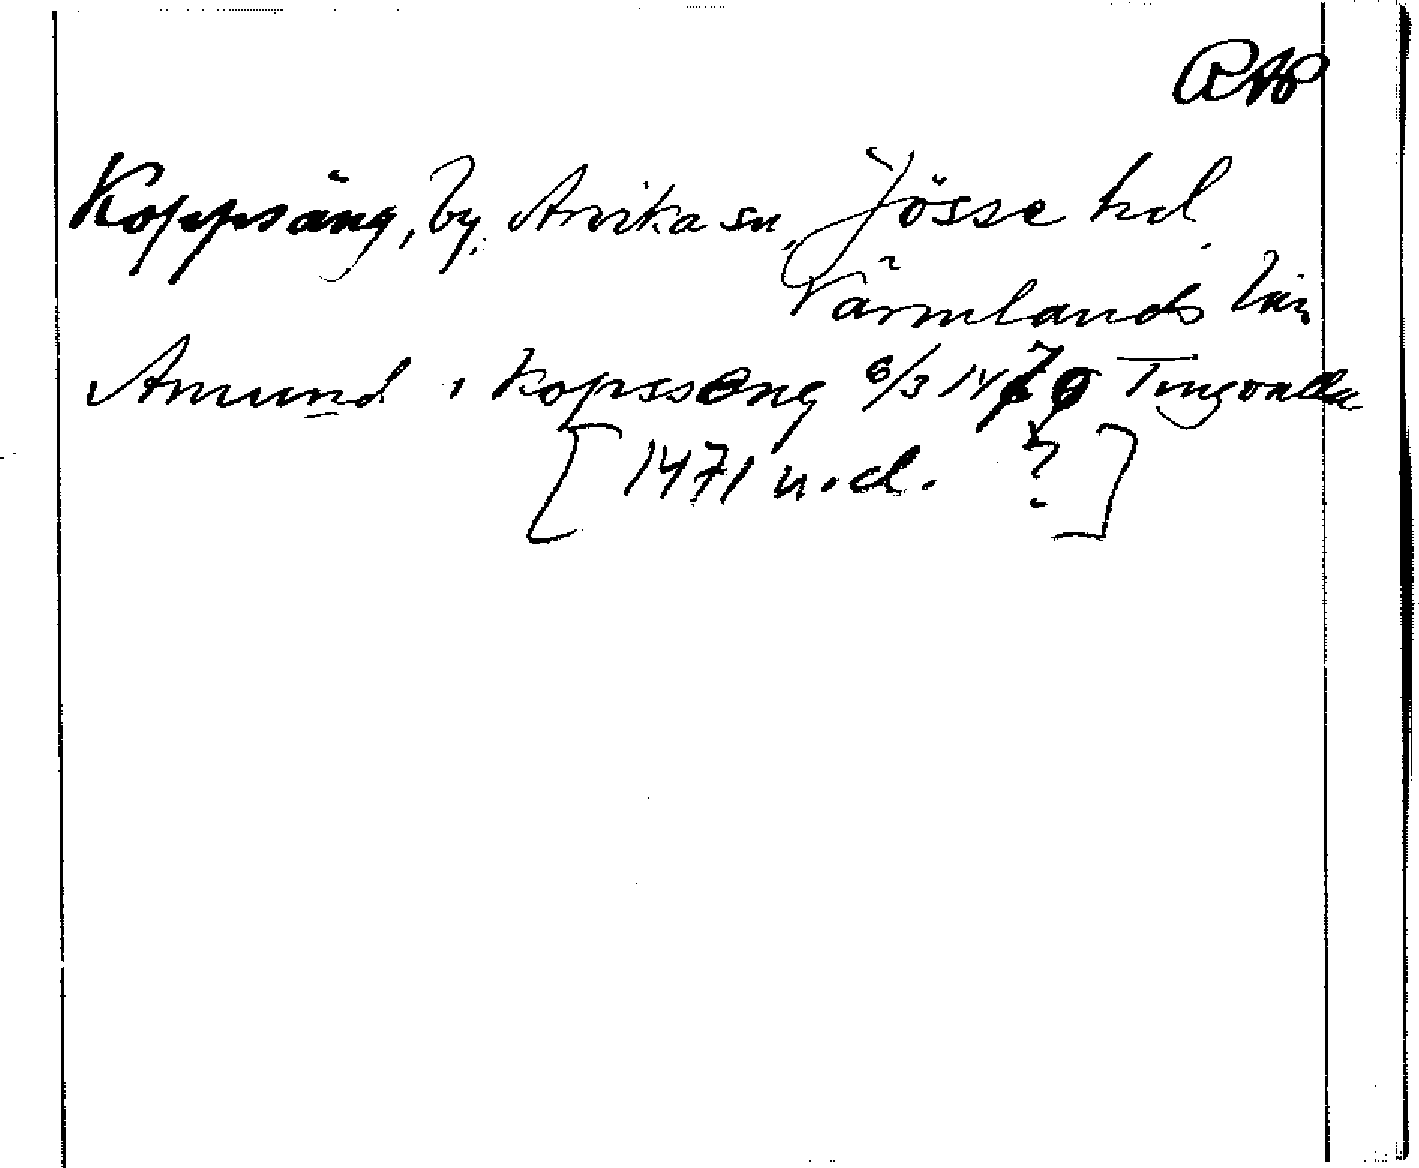 Koppsäng, by, Arvika sn, Jösse hd
Värmlands län
Amund i kopsseng 6/3 1470 Tingvalla
[1471 u.d. ?]